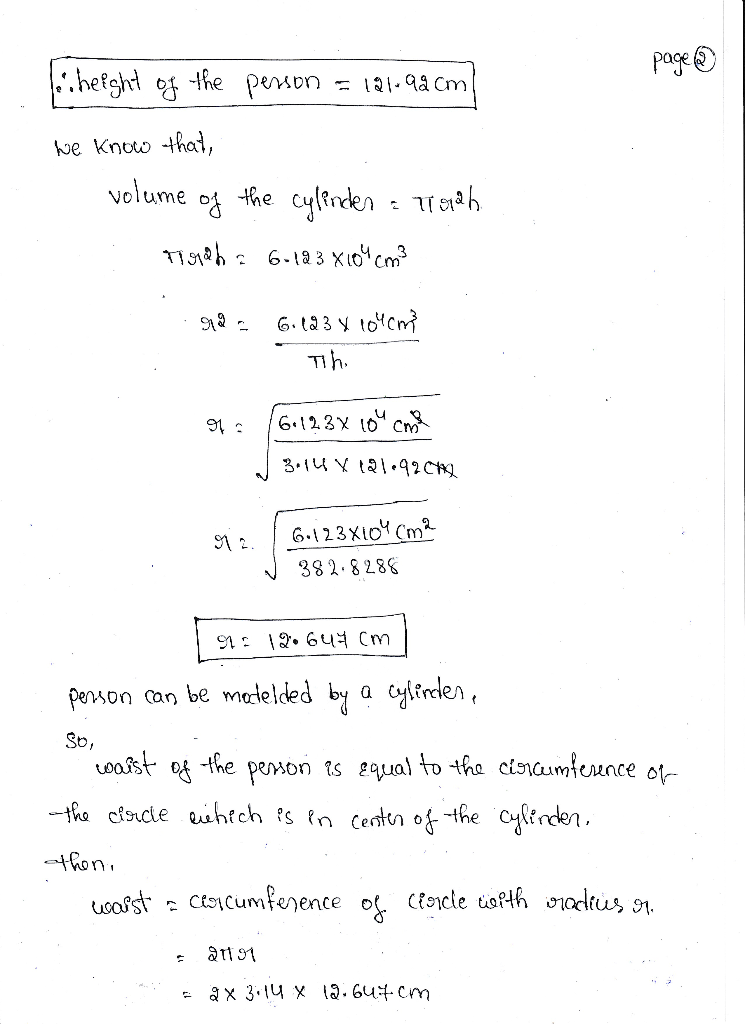 page ②
∴ height of the person = 121.92 cm
We know that,
volume of the cylinder = πr²h
πr²h = 6.123 × 10⁴ cm³
r² = 6.123 × 10⁴ cm³ / πh.
r = √(6.123 × 10⁴ cm³ / 3.14 × 121.92 cm)
r = √(6.123 × 10⁴ cm² / 382.8288)
r = 12.647 cm
person can be modelded by a cylinder,
So,
waist of the person is equal to the circumference of
the circle which is in center of the cylinder.
then,
waist = circumference of circle with radius r.
= 2πr
= 2 × 3.14 × 12.647 cm